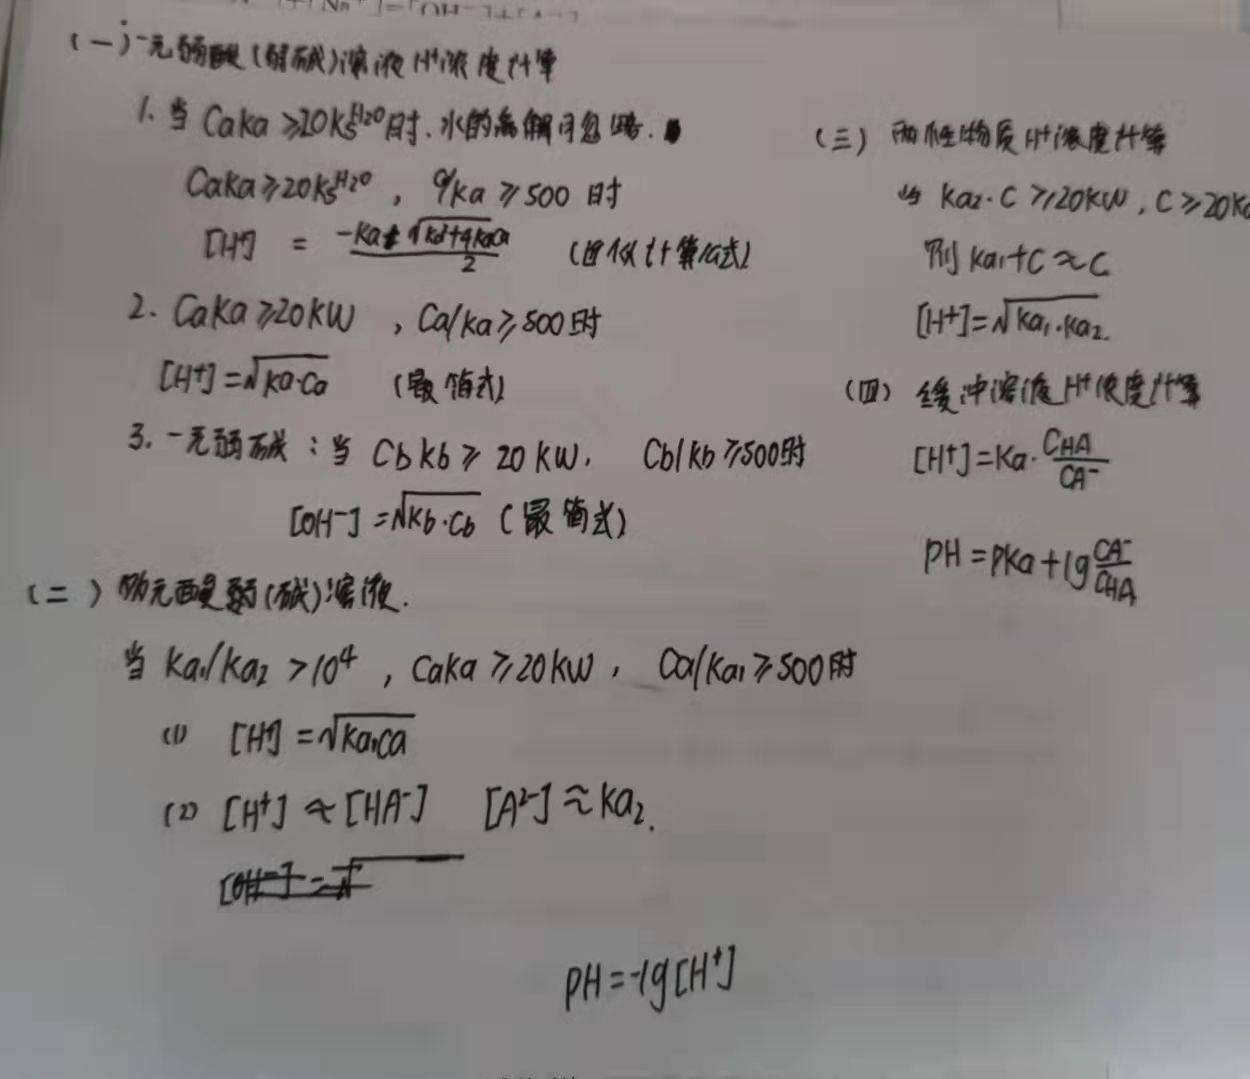 [Na⁺]=[OH⁻]+[A⁻]
(一) 一元弱酸(弱碱)溶液H⁺浓度计算
1. 当 CaKa≥20Ks^H2O时.水的离解可忽略.
CaKa≥20Ks^H2O , c/Ka≥500时
[H⁺] = (-Ka±√(Ka²+4KaCa))/2 (近似计算公式)
2. CaKa≥20KW , Ca/Ka≥500时
[H⁺]=√Ka·Ca (最简式)
3. 一元弱碱:当 CbKb≥20KW, Cb/Kb≥500时
[OH⁻]=√Kb·Cb (最简式)
(二) 元酸 (碱)溶液.
当 Ka₁/Ka₂>10⁴ , CaKa≥20KW, Ca/Ka₁≥500时
(1) [H⁺]=√Ka₁Ca
(2) [H⁺]≈[HA⁻] [A²⁻]≈Ka₂.
[OH⁻]=√
PH=-lg[H⁺]
(三) 两性物质H⁺浓度计算
当 Ka₂·C≥20KW, C≥20Ka
则Ka₁+C≈C
[H⁺]=√Ka₁·Ka₂.
(四) 缓冲溶液H⁺浓度计算
[H⁺]=Ka·CHA/CA⁻
PH=PKa+lg CA⁻/CHA